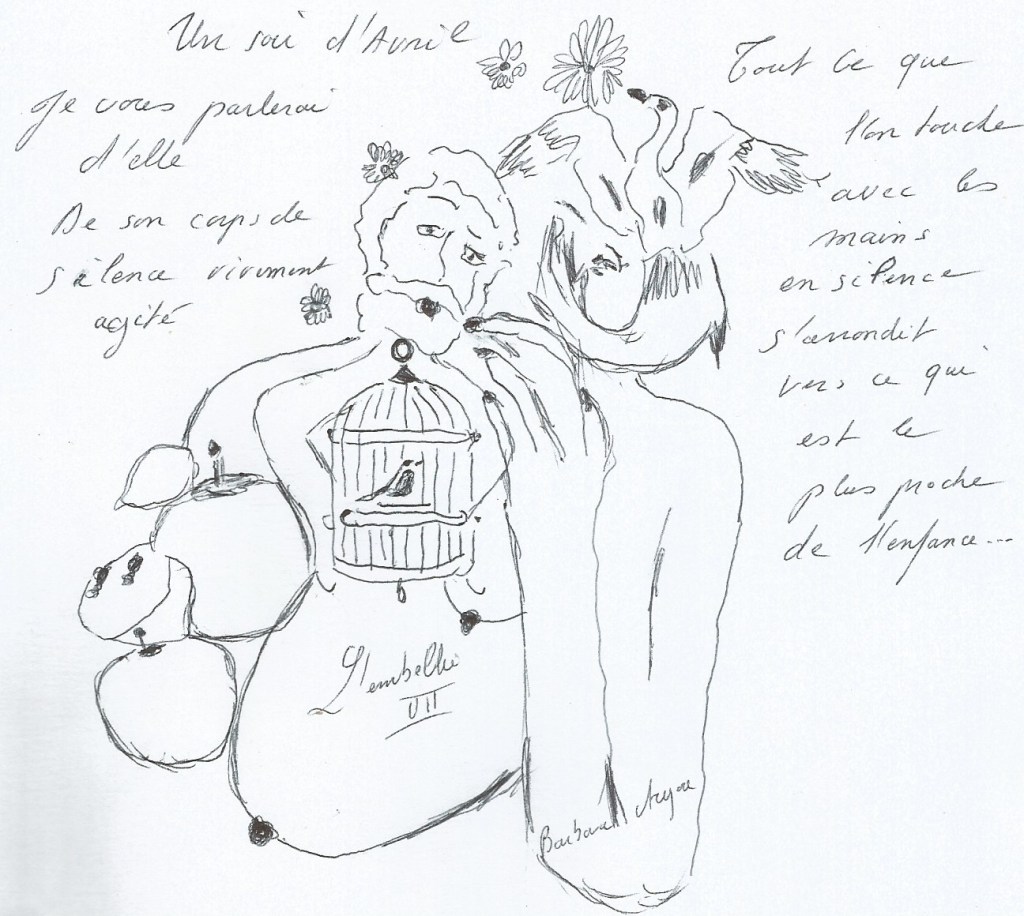 Un soir d'Avril
Je vous parlerai
d'elle
De son corps de
silence vivement
agité
Tout ce que
l'on touche
avec les
mains
en silence
s'arrondit
vers ce qui
est le
plus proche
de l'enfance...
L'embellie
VII
Barbara